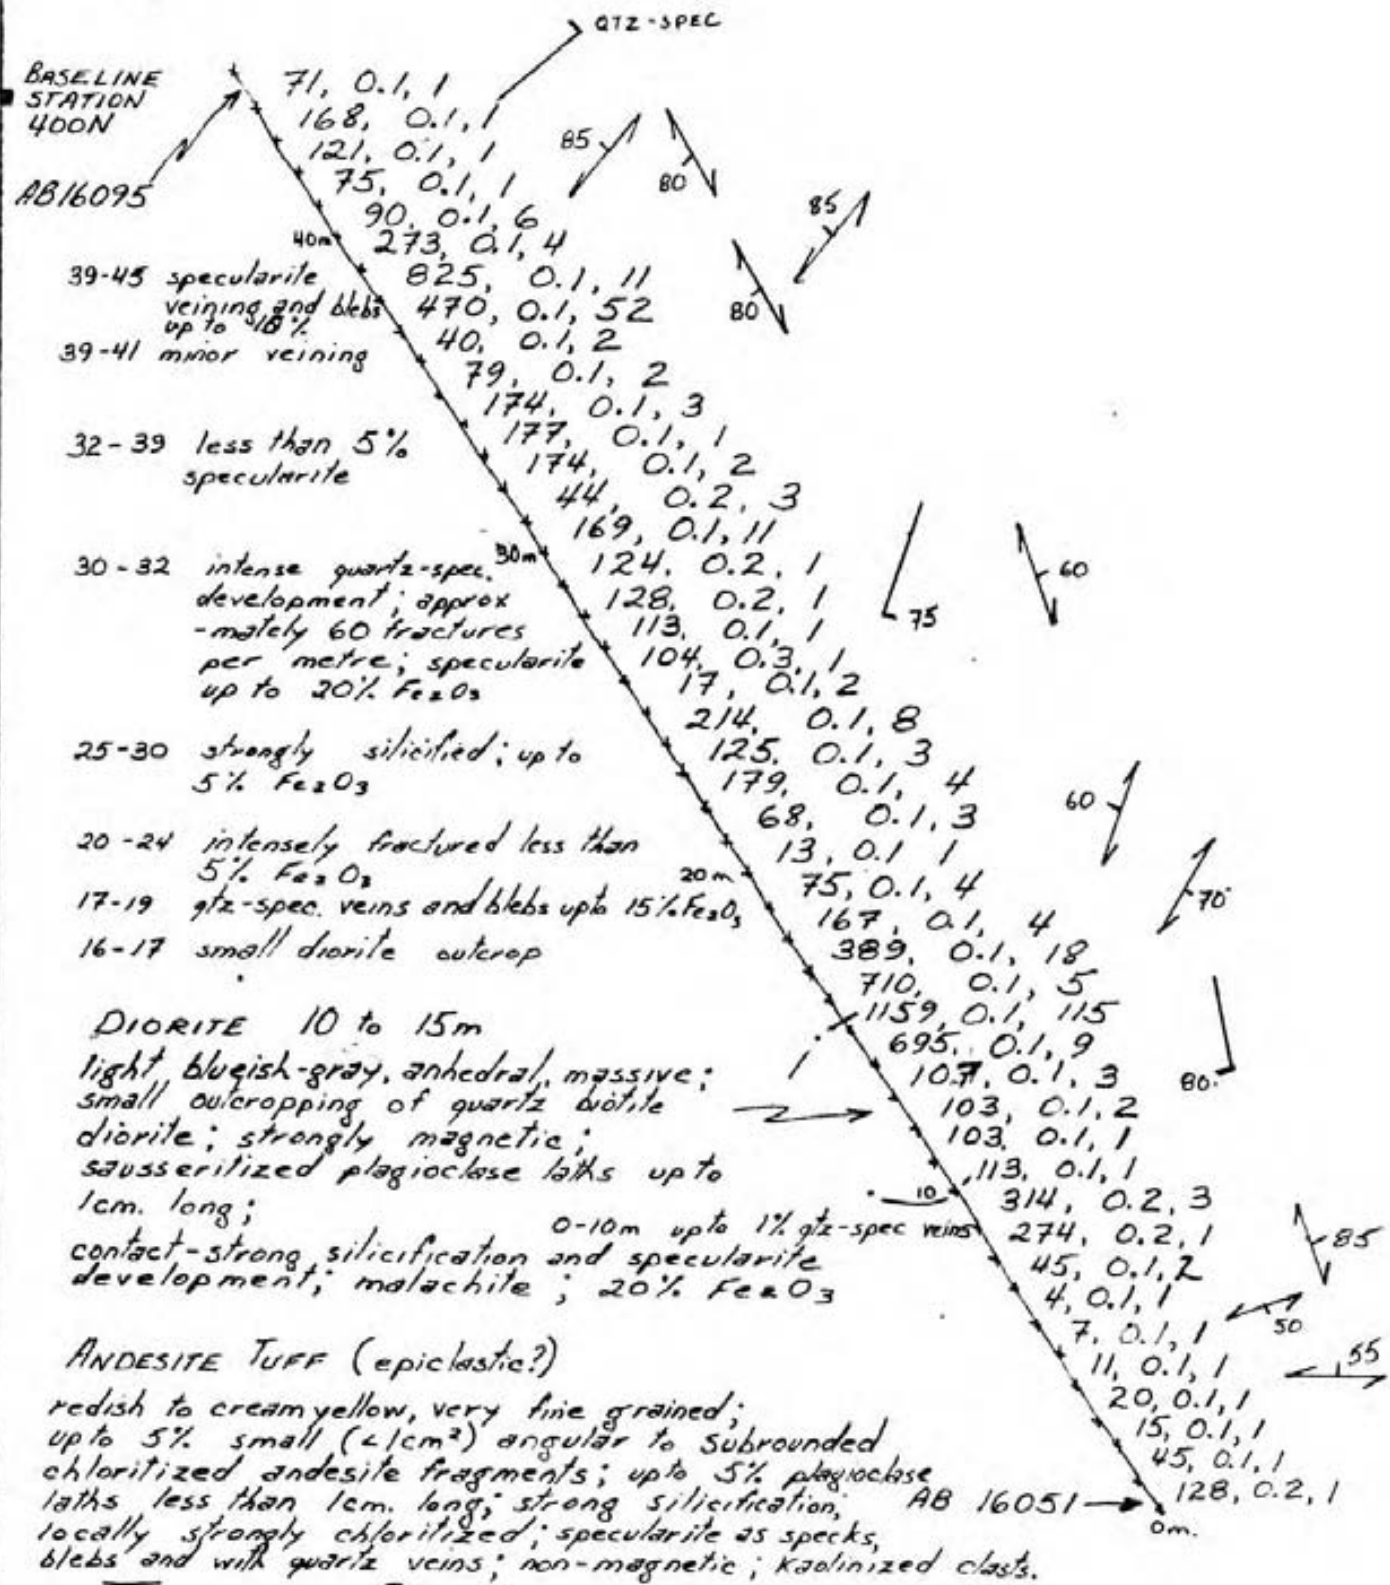 QTZ-SPEC
BASELINE
STATION
400N
AB16095
71, 0.1, 1
168, 0.1, 1
121, 0.1, 1
75, 0.1, 1
90, 0.1, 6
40m
273, 0.1, 4
825, 0.1, 11
470, 0.1, 52
40, 0.1, 2
79, 0.1, 2
174, 0.1, 3
177, 0.1, 1
174, 0.1, 2
44, 0.2, 3
169, 0.1, 11
30m
124, 0.2, 1
128, 0.2, 1
113, 0.1, 1
104, 0.3, 1
17, 0.1, 2
214, 0.1, 8
125, 0.1, 3
179, 0.1, 4
68, 0.1, 3
13, 0.1 1
20m
75, 0.1, 4
167, 0.1, 4
389, 0.1, 18
710, 0.1, 5
1159, 0.1, 115
695, 0.1, 9
107, 0.1, 3
103, 0.1, 2
103, 0.1, 1
113, 0.1, 1
10
314, 0.2, 3
274, 0.2, 1
45, 0.1, 2
4, 0.1, 1
7, 0.1, 1
11, 0.1, 1
20, 0.1, 1
15, 0.1, 1
45, 0.1, 1
128, 0.2, 1
0m.
AB 16051
85
80
85
80
60
75
60
70
80
85
50
55
39-45 specularite
veining and blebs
up to 10%
39-41 minor veining
32-39 less than 5%
specularite
30-32 intense quartz-spec.
development; approx
-mately 60 fractures
per metre; specularite
up to 20% Fe2O3
25-30 strongly silicified; up to
5% Fe2O3
20-24 intensely fractured less than
5% Fe2O3
17-19 qtz-spec. veins and blebs upto 15% Fe2O3
16-17 small diorite outcrop
DIORITE 10 to 15m
light blueish-gray, anhedral, massive;
small outcropping of quartz biotite
diorite; strongly magnetic;
sausseritized plagioclase laths up to
1cm. long;
0-10m upto 1% qtz-spec veins
contact-strong silicification and specularite
development; malachite; 20% Fe2O3
ANDESITE TUFF (epiclastic?)
redish to cream yellow, very fine grained;
up to 5% small (<1cm²) angular to subrounded
chloritized andesite fragments; upto 5% plagioclase
laths less than 1cm. long; strong silicification;
locally strongly chloritized; specularite as specks,
blebs and with quartz veins; non-magnetic; kaolinized clasts.